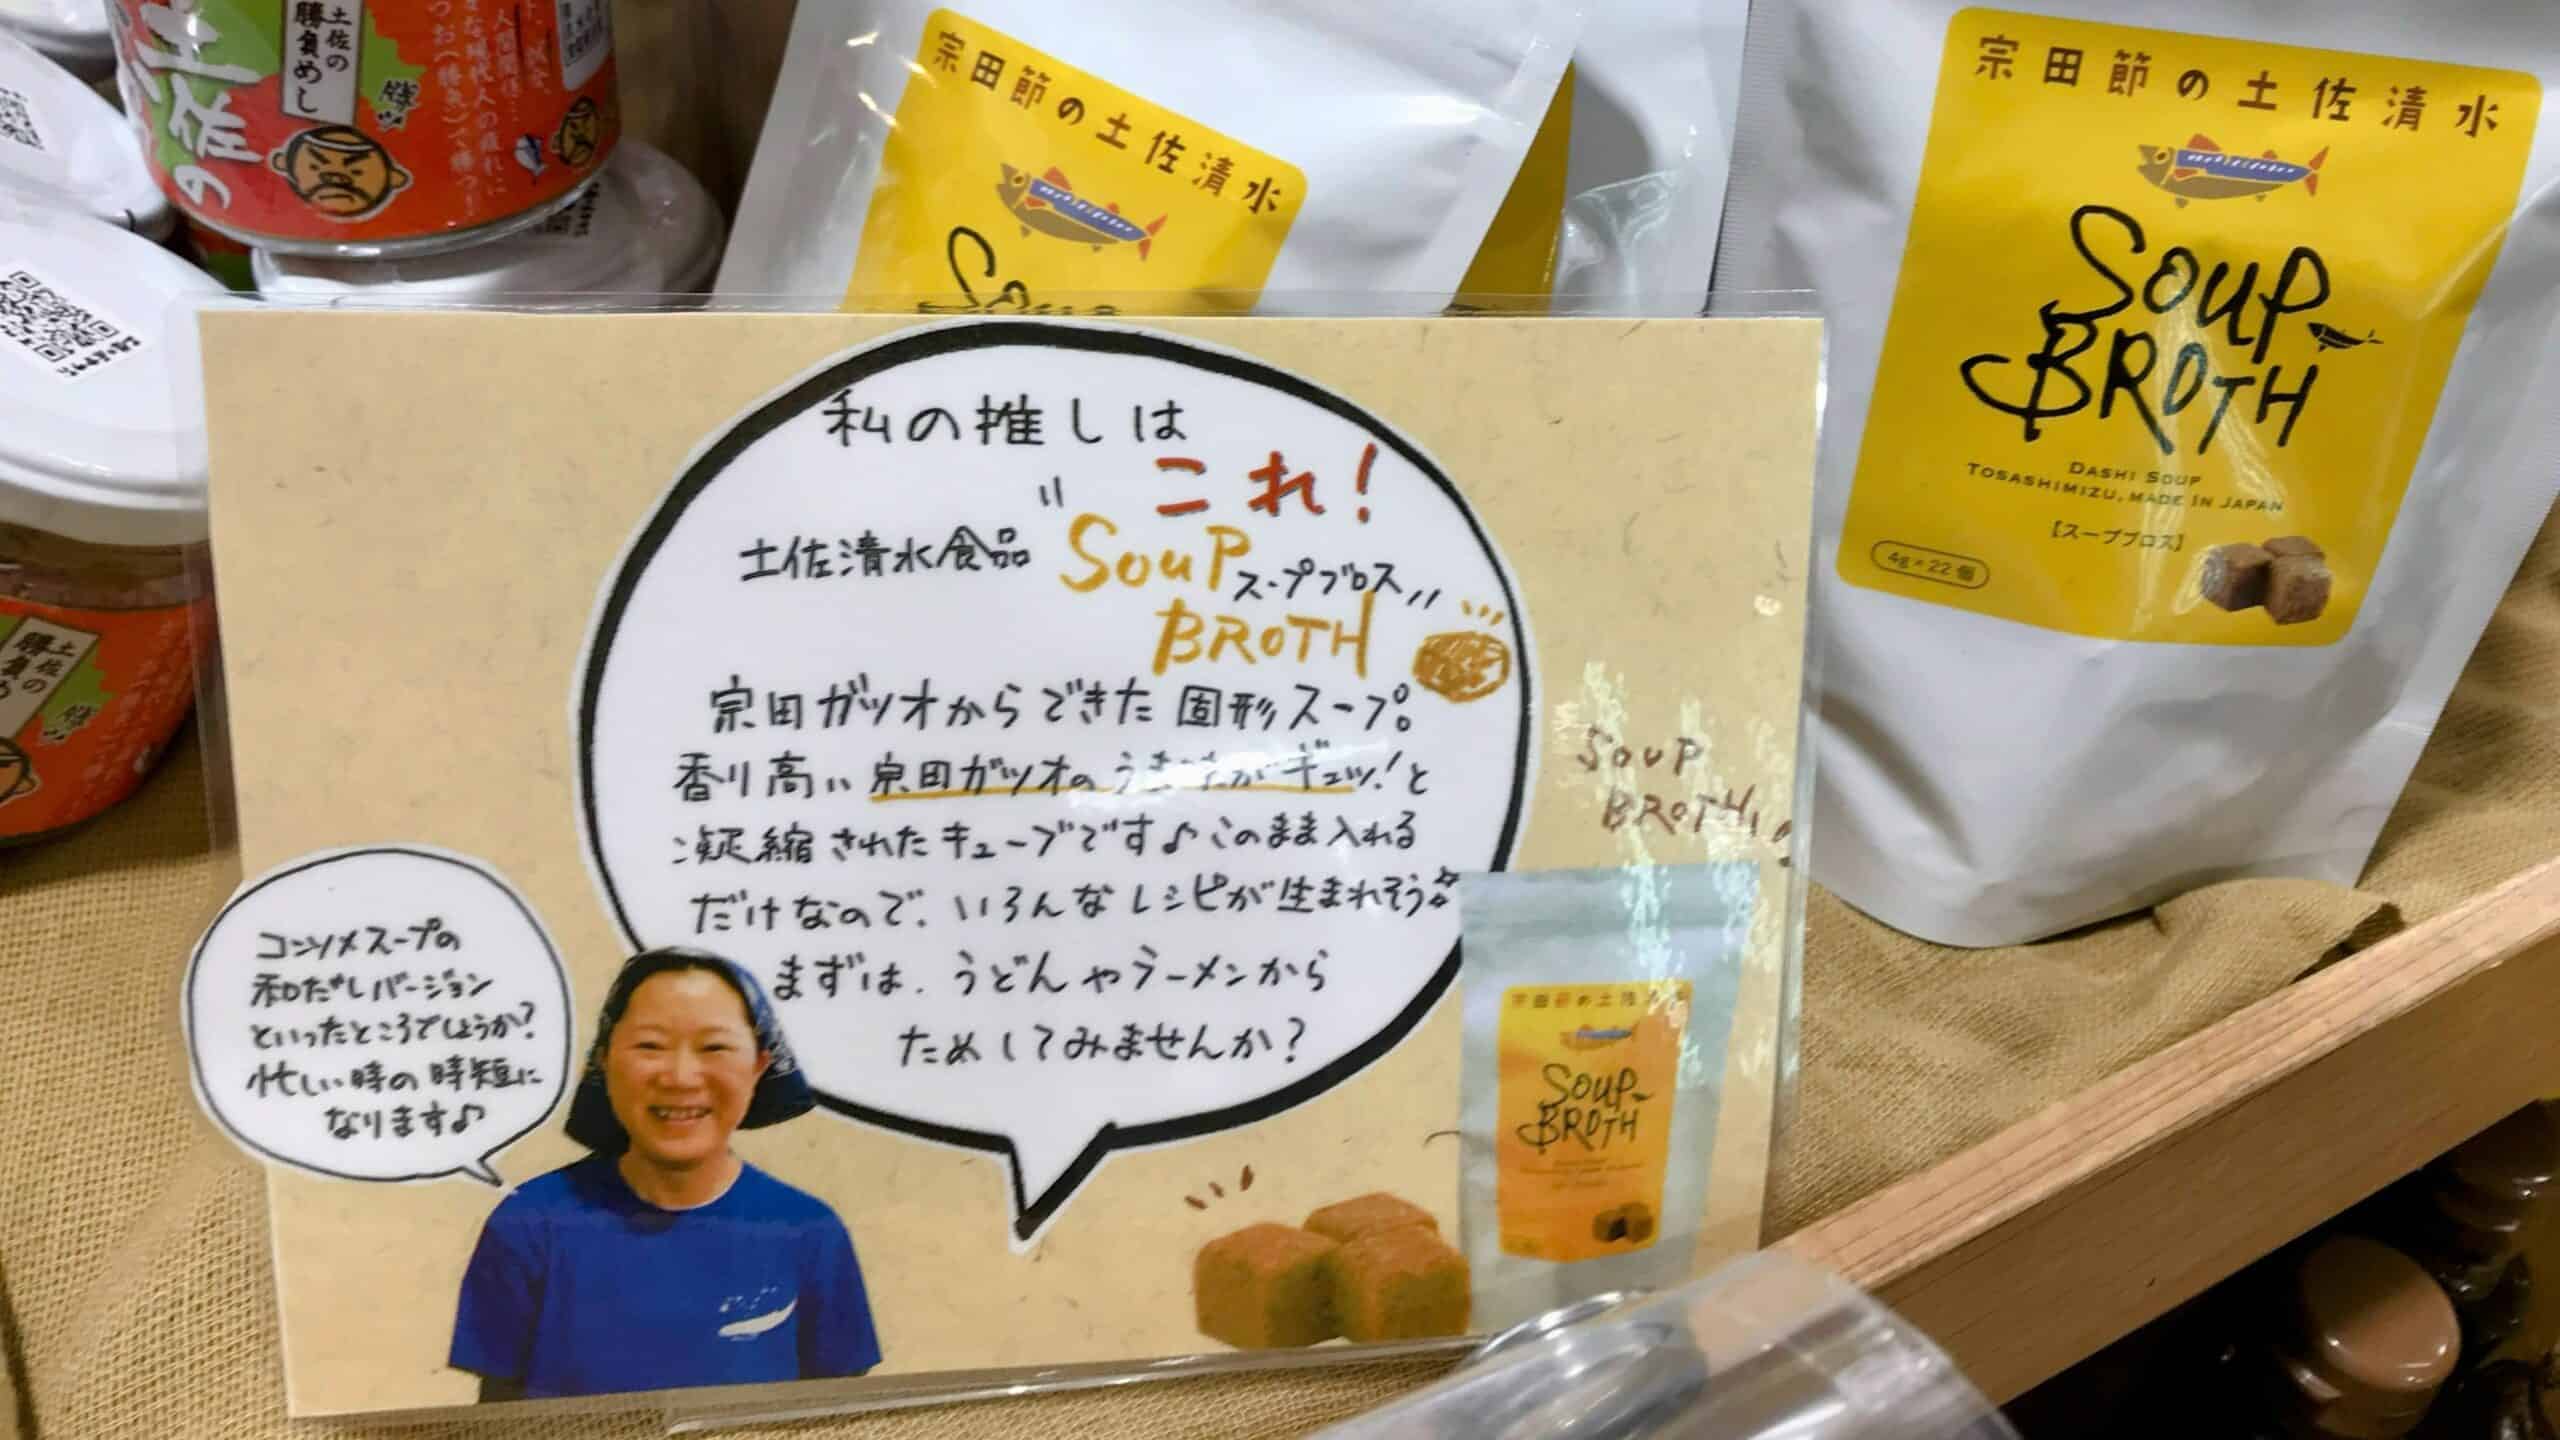 土佐の
勝負めし
土佐の
宗田節の土佐清水
宗田節の土佐清水
SOUP
BROTH
DASHI SOUP
TOSASHIMIZU, MADE IN JAPAN
【スープブロス】
4g×22個
私の推しは
これ!
土佐清水食品 "SOUP
スープブロス"
BROTH
宗田ガツオからできた固形スープ。
香り高い宗田ガツオのうまみがギュッ!と
凝縮されたキューブです♪このまま入れる
だけなので、いろんなレシピが生まれそう
まずは、うどんやラーメンから
ためしてみませんか?
コンソメスープの
和だしバージョン
といったところでしょうか?
忙しい時の時短に
なります♪
SOUP
BROTH
宗田節の土佐清水
SOUP
BROTH
土佐の